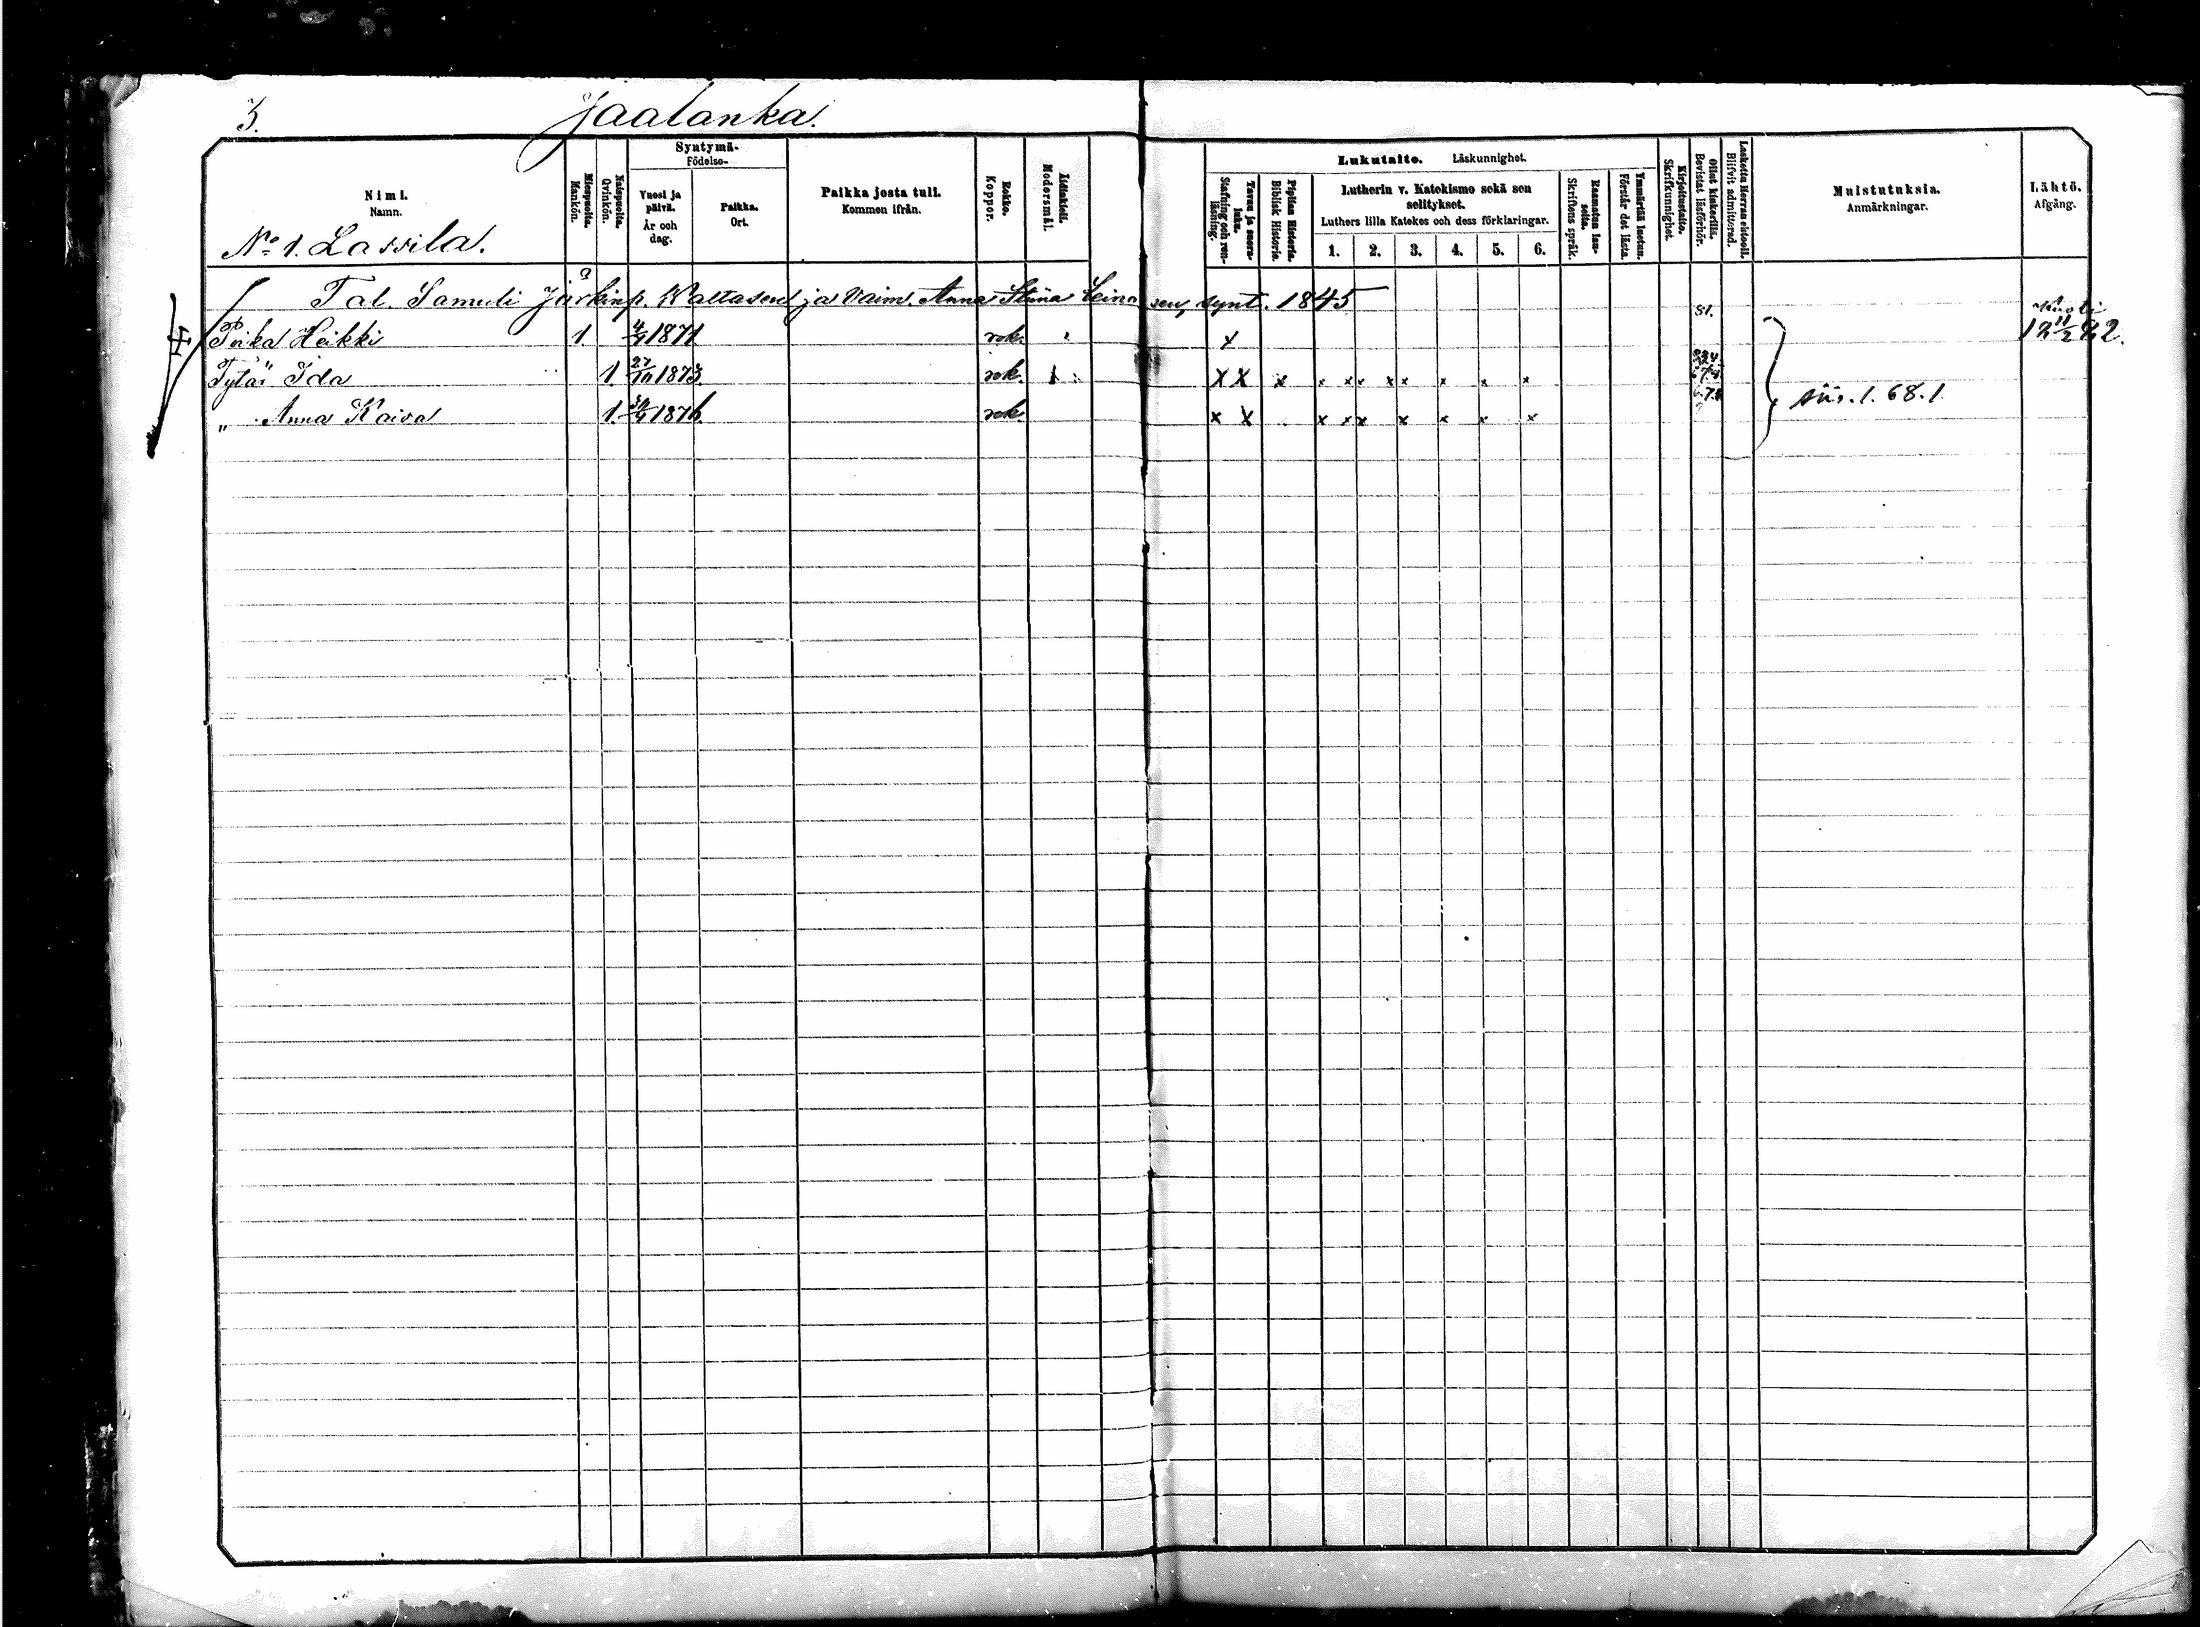 3. Jaalanka.
Nimi. Namn.
Miespuolta. Mankön.
Naispuolta. Qvinkön.
Syntymä- Födelse-
Vuosi ja päivä. År och dag.
Paikka. Ort.
Paikka josta tuli. Kommen ifrån.
Rokko. Koppor.
Äidinkieli. Modersmål.
Lukutaito. Läskunnighet.
Tavuu ja suora-luku. Stafning och ren-läsning.
Piplian Historia. Biblisk Historie.
Lutherin v. Katekismo sekä sen selitykset.
Luthers lilla Katekes och dess förklaringar.
1. 2. 3. 4. 5. 6.
Raamatun lau-seita. Skriftens språk.
Ymmärtää luetun. Förstår det lästa.
Kirjoitustaito. Skrifkunnighet.
Ollut kinkerillä. Bevistat läsförhör.
Laskettu Herran ehtool. Blifvit admitterad.
Muistutuksia. Anmärkningar.
Lähtö. Afgång.
No 1. Lassila.
Tal. Samuli Jörkinp. Waltasen ja Vaim. Anna Stiina Leinosen, synt. 1845
Poika Heikki 1 4/4 1871 rok. x Kuoli 12 11/2 82.
Tytär Ida 1 27/10 1873. rok. x x x x x x x x x x x
" Anna Kaisa 1. 30/4 1876. rok. x x x x x x x x x siv. 1. 68. 1